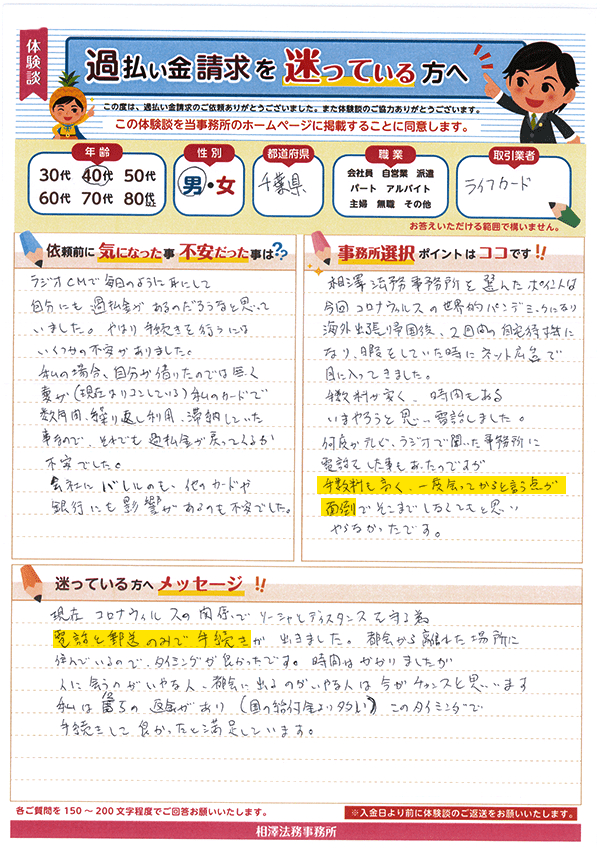 体験談
過払い金請求を迷っている方へ
この度は、過払い金請求のご依頼ありがとうございました。また体験談のご協力ありがとうございます。
この体験談を当事務所のホームページに掲載することに同意します。
年齢
30代 40代 50代
60代 70代 80歳以上
性別
男・女
都道府県
千葉県
職業
会社員 自営業 派遣
パート アルバイト
主婦 無職 その他
取引業者
ライフカード
お答えいただける範囲で構いません。
依頼前に気になった事 不安だった事は??
ラジオCMで毎日のように耳にして
自分にも過払金があるのだろうなと思って
いました。やはり手続きを行うには
いくつかの不安がありました。
私の場合、自分が借りたのでは無く
妻が(現在はリコンしている)私のカードで
数ヶ月間、繰り返し利用、滞納していた
事なので、それでも過払金が戻ってくるか
不安でした。
会社にバレルのも、他のカードや
銀行にも影響があるのも不安でした。
事務所選択ポイントはココです!!
相澤法務事務所を選んだポイントは
今回コロナウィルスの世界的パンデミックになり
海外出張より帰国後、2週間の自宅待機に
なり、暇をしていた時にネット広告で
目に入ってきました。
手数料が安く、時間もある
いまやろうと思い電話しました。
何度かテレビ、ラジオで聞いた事務所に
電話をした事もあったのですが
手数料も高く、一度会ってからと言う点が
面倒でそこまでしなくてもと思い
やらなかったです。
迷っている方へメッセージ!!
現在コロナウィルスの関係でソーシャルディスタンスを守る為
電話と郵送のみで手続きが出きました。都会から離れた場所に
住んでいるので、タイミングが良かったです。時間はかかりましたが
人に会うのがいやな人、都会に出るのがいやな人は今がチャンスと思います
私は の返金があり(国の給付金より多い)このタイミングで
手続きして良かったと満足しています。
各ご質問を150~200文字程度でご回答お願いいたします。
※入金日より前に体験談のご返送をお願いいたします。
相澤法務事務所